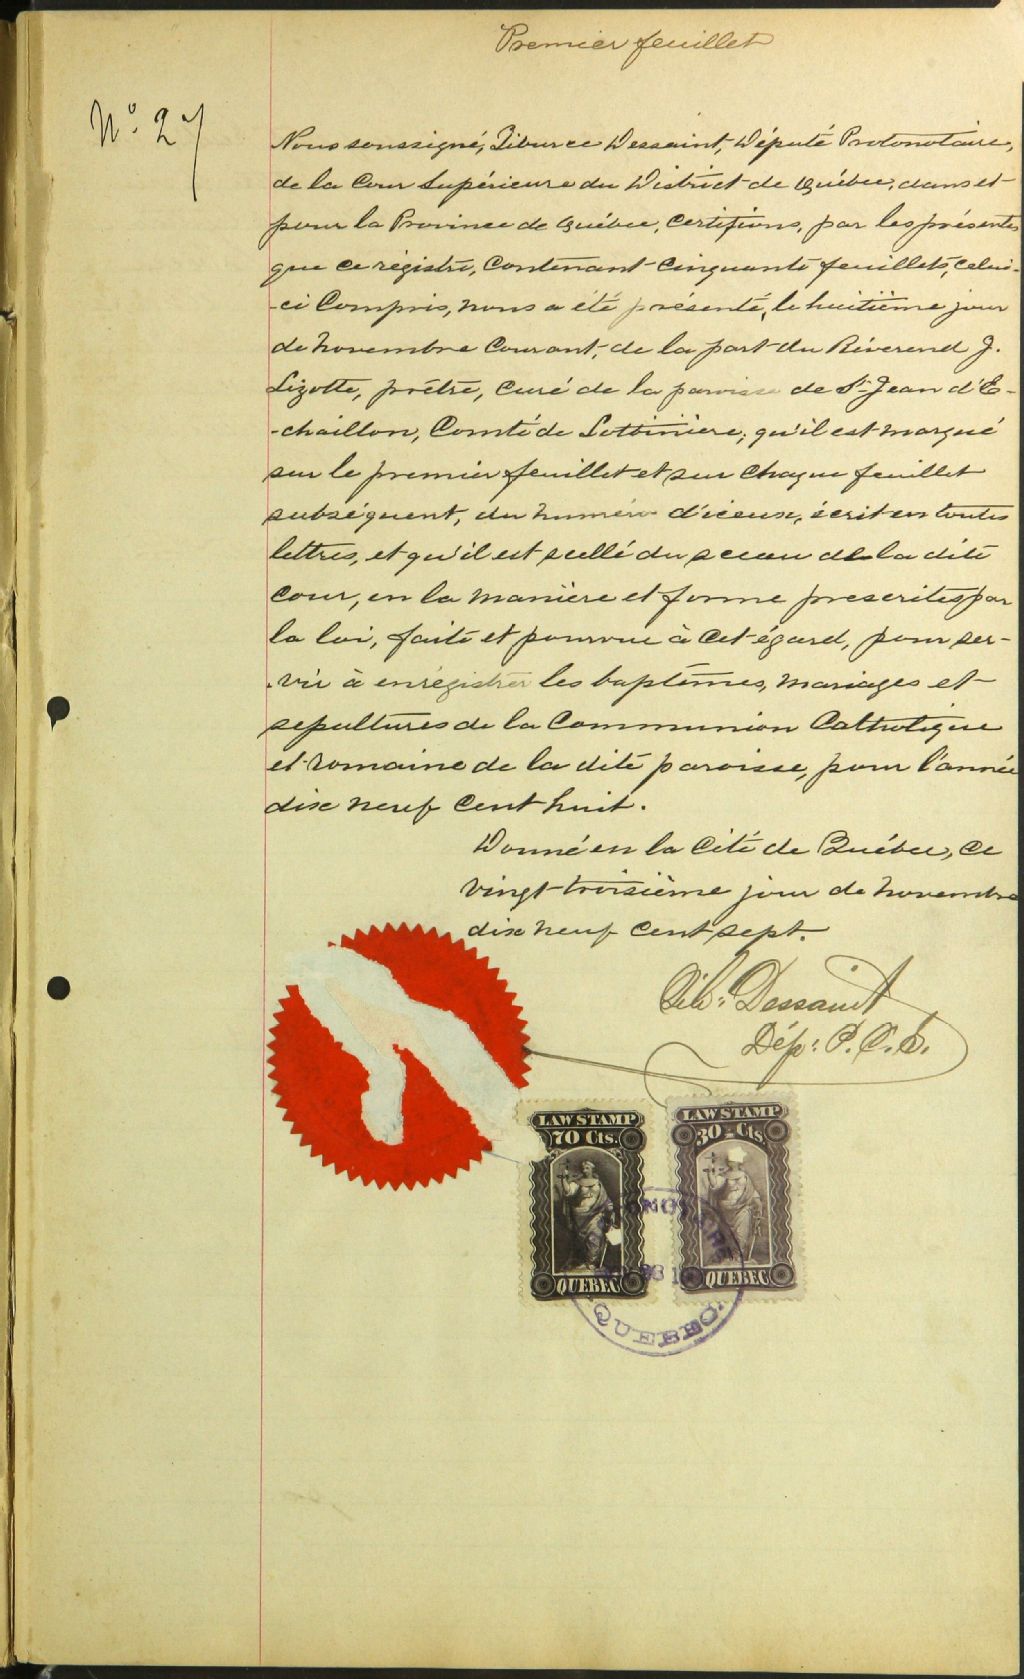 Premier feuillet
No. 27
Nous soussigné, Tiburce Dessaint, Député Protonotaire,
de la Cour Supérieure du District de Québec, dans et
pour la Province de Québec, Certifions, par les présentes
que ce régistre, Contenant Cinquante feuillets, celui-
-ci Compris, nous a été présenté, le huitième jour
de novembre Courant, de la part du Révérend J.
Lizotte, prêtre, Curé de la paroisse de St Jean d'E-
-chaillon, Comté de Lotbinière; qu'il est marqué
sur le premier feuillet et sur Chaque feuillet
subséquent, du numéro d'iceux, écrit en toutes
lettres, et qu'il est scellé du sceau de la dite
Cour, en la manière et forme prescrites par
la loi, faite et pourvue à Cet égard, pour ser-
-vir à enrégistrer les baptêmes, mariages et
sépultures de la Communion Catholique
et romaine de la dite paroisse, pour l'année
dix neuf Cent huit.
Donné en la Cité de Québec, Ce
vingt-troisième jour de novembre
dix neuf Cent sept.
Tib. Dessaint
Dép. P. C. S.
LAW STAMP LAW STAMP
70 Cts. 30 Cts.
QUEBEC QUEBEC
QUEBEC